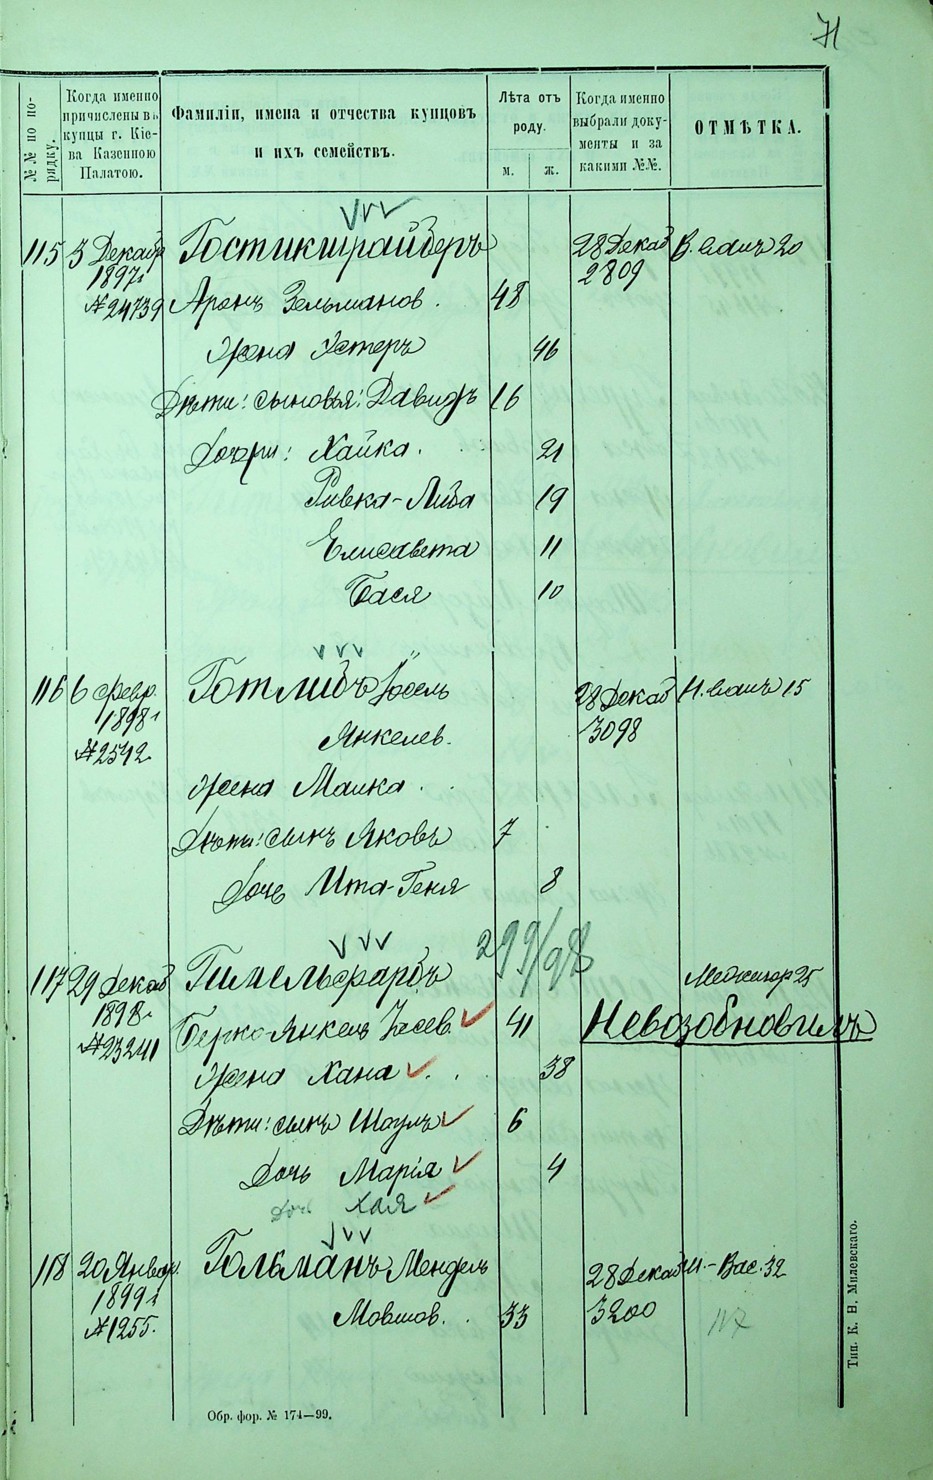 71
№№ по порядку.
Когда именно причислены въ купцы г. Кіева Казенною Палатою.
Фамиліи, имена и отчества купцовъ и ихъ семействъ.
Лѣта отъ роду.
м.
ж.
Когда именно выбрали документы и за какими №№.
ОТМѢТКА.
115 3 Декаб Гостикштрайберъ 28 Декаб 20
1897г 2809
№24739 Аронъ Зельманов. 48
жена Эстеръ 46
Дѣти: сыновья: Давидъ 16
Дочери: Хайка. 21
Ривка-Либа 19
Елисавета 11
Бася 10
116 6 Февр. Готлибъ Іосель 28 Декаб 15
1898г Янкелев. 3098
№2542
жена Малка.
Дѣти: сынъ Яковъ 7
Дочь Ита-Геня 8
299/98
117 29 Декаб Гимельфарбъ Межигор 25
1898г Берко-Янкель 41 Невозобновилъ
№23241
жена Хана 38
Дѣти: сынъ Шаулъ 6
Дочь Марія 4
Доч Хая
118 20 Январ. Гольманъ Мендель 28 Декаб Вас. 32
1899г Мовшов. 33 3200
№1255.
Обр. фор. № 174—99.
Тип. К. Н. Милевскаго.